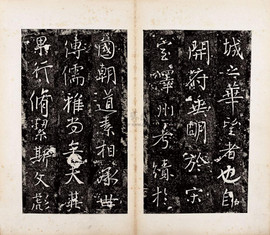 城之華望者也自
開府垂明於宋
室澤州考績於
國朝道素相承世
傳儒雅尚矣夫其
果行脩潔斯文彪